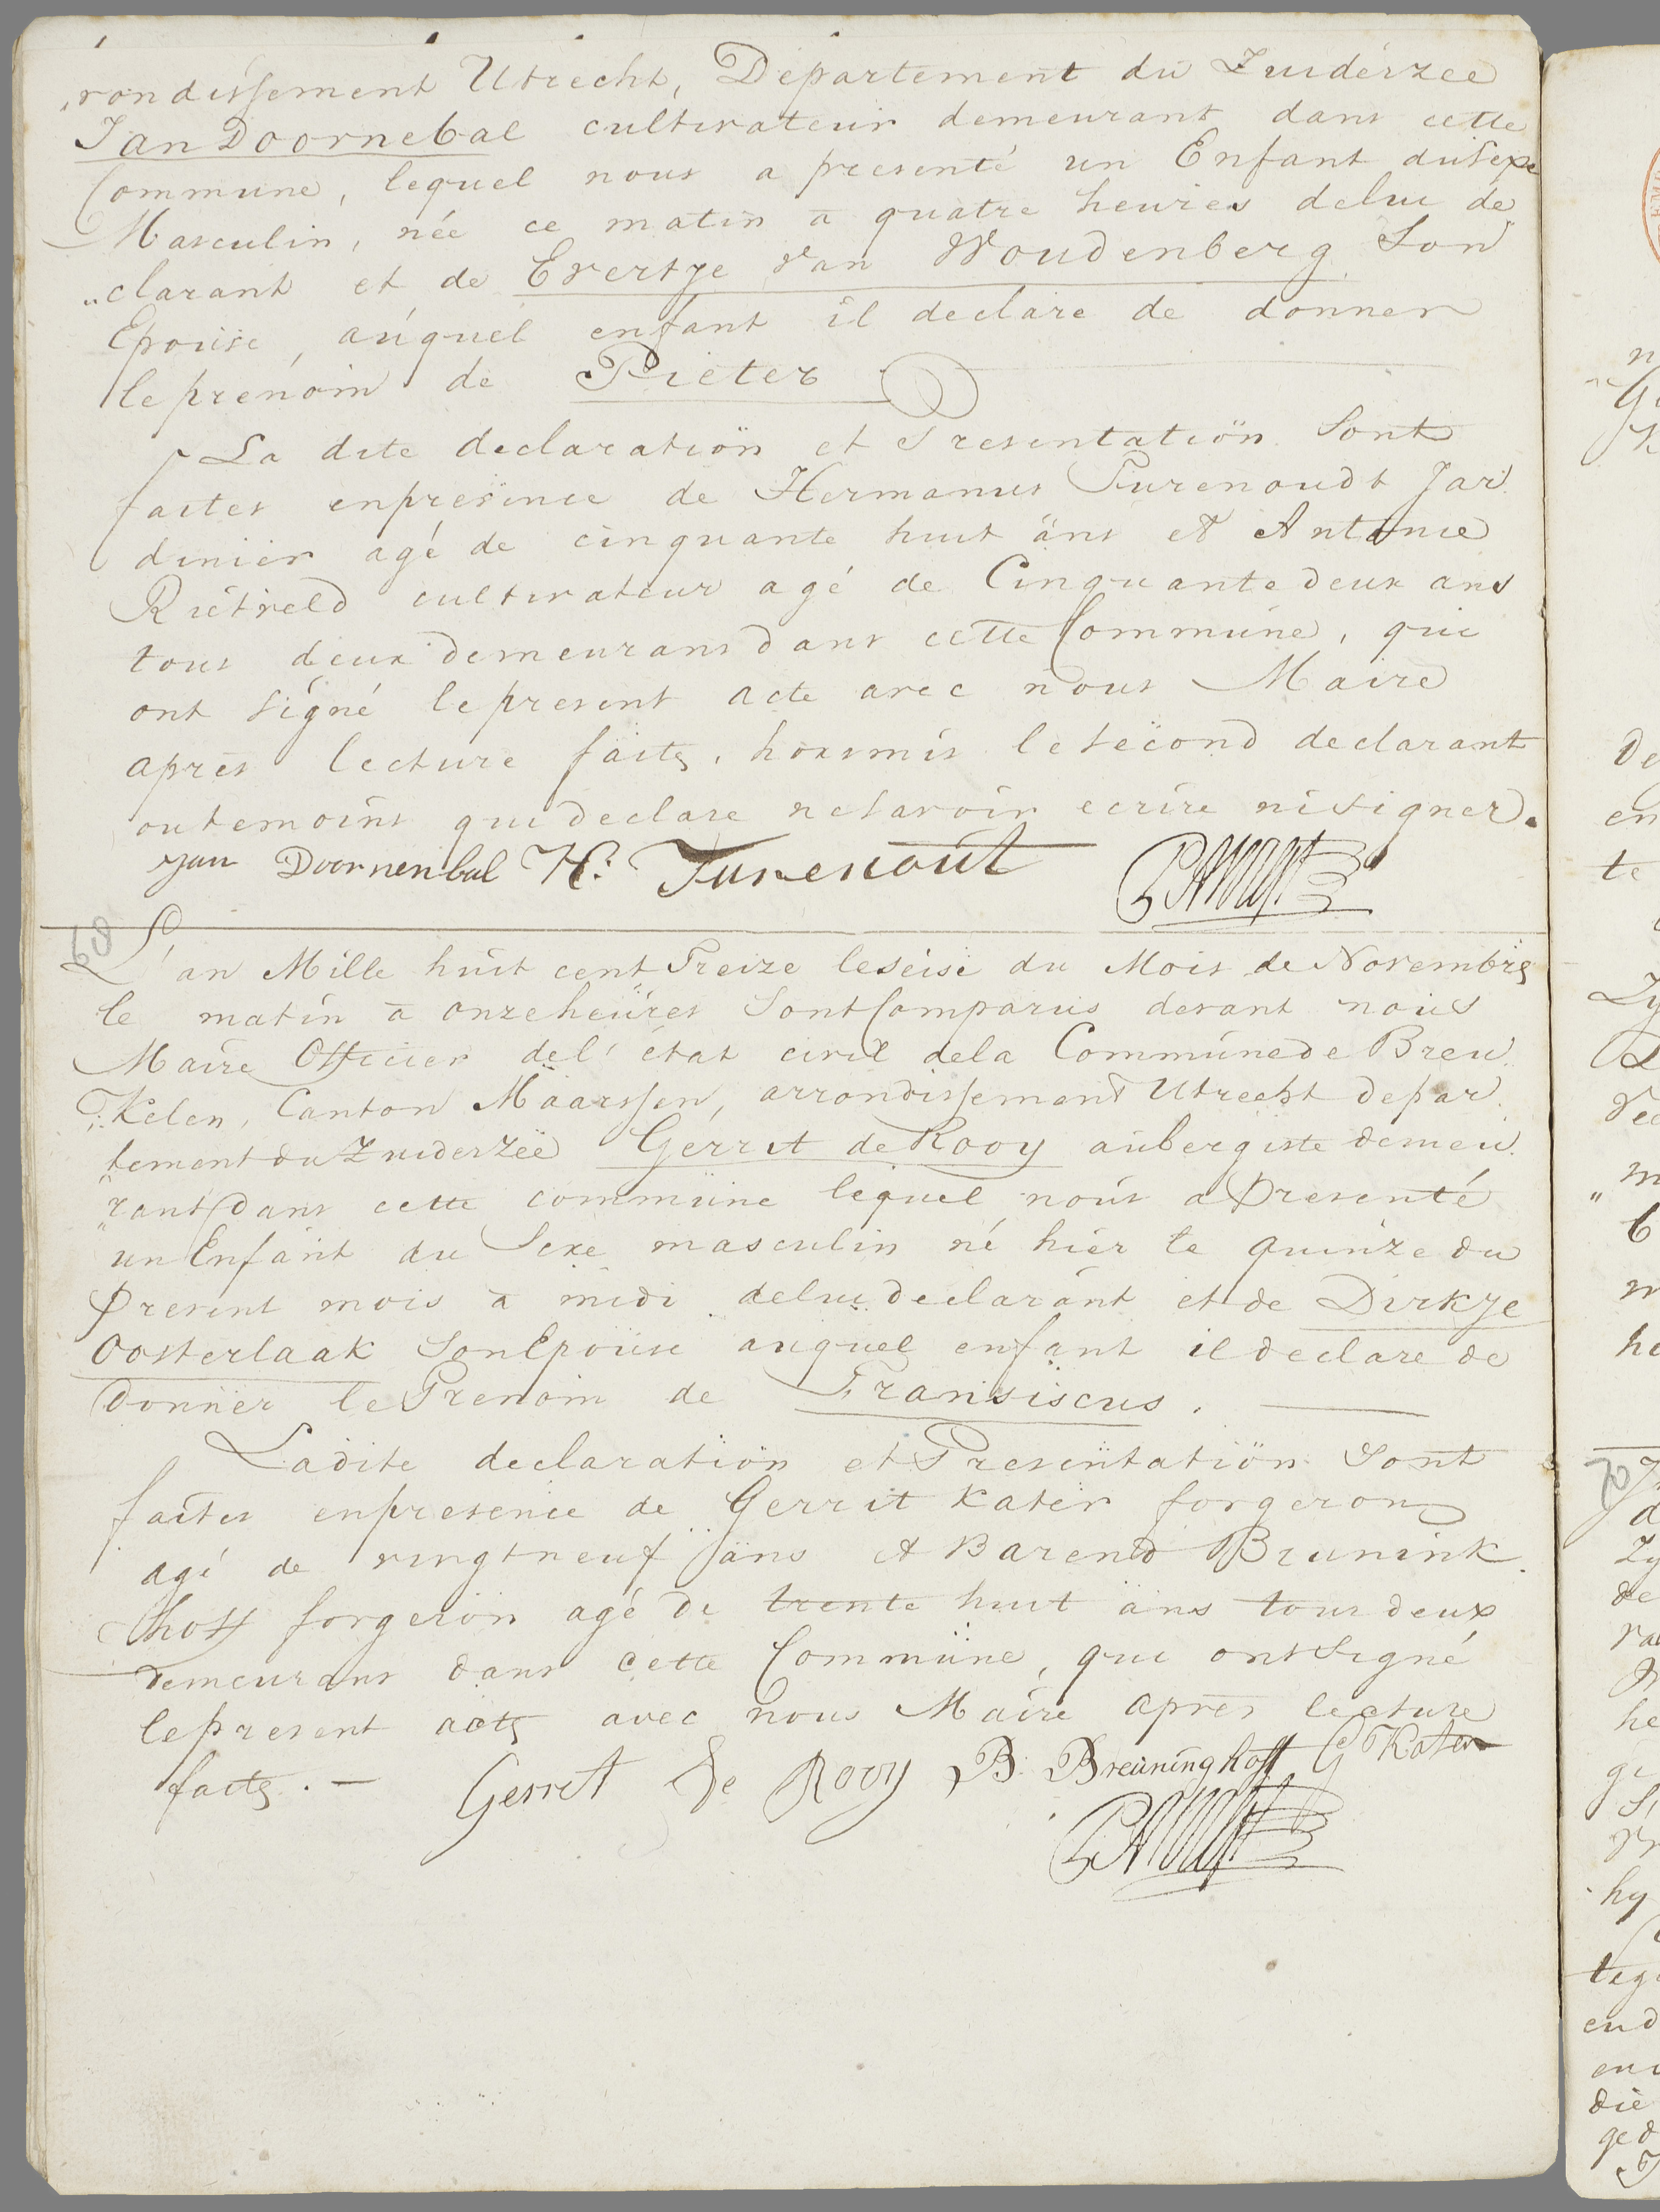 rondissement Utrecht, Departement du Zuiderzee
Jan Doornebal cultivateur demeurant dans cette
Commune, lequel nous a presenté un Enfant du Sexe
Masculin, née ce matin a quatre heures de lui de
„clarant et de Evertje van Woudenberg Son
Epouse, auquel enfant il declare de donner
le prenom de Pieter
La dite declaration et Presentation Sont
faites en presence de Hermanus Turenoudt Jar
dinier agé de cinquante huit ans et Antonie
Rietveld cultivateur agé de Cinquante deux ans
tous deux demeurans dans cette Commune, qui
ont signé le present acte avec nous Maire
apres lecture faite, hormis le second declarant
ou temoins qui declare ne savoir ecrire ni signer.
Jan Doornenbal H: Turenout
69
L'an Mille huit cent Treize le seise du Mois de Novembre
le matin a onze heures Sont Comparus devant nous
Maire Officier de l'état civil de la Commune de Breu
„kelen, Canton Maarssen, arrondissement Utrecht depar
tement du Zuiderzee Gerrit de Rooy aubergiste demeu
„rant dans cette commune lequel nous a Presenté
un Enfant du Sexe masculin né hier le quinze du
Present mois a midi de lui declarant et de Dirkje
Oosterlaak Son Epouse auquel enfant il declare de
Donner le Prenom de Fransiscus.
La dite declaration et Presentation Sont
faites en presence de Gerrit Kater forgeron
agé de vingt neuf ans et Barend Brunink
hoff forgeron agé de trente huit ans tous deux
demeurans dans cette Commune, qui ont Signé
le present acte avec nous Maire apres lecture
faite. — Gerrit De Rooy B: Breuninghoff G Kater
70